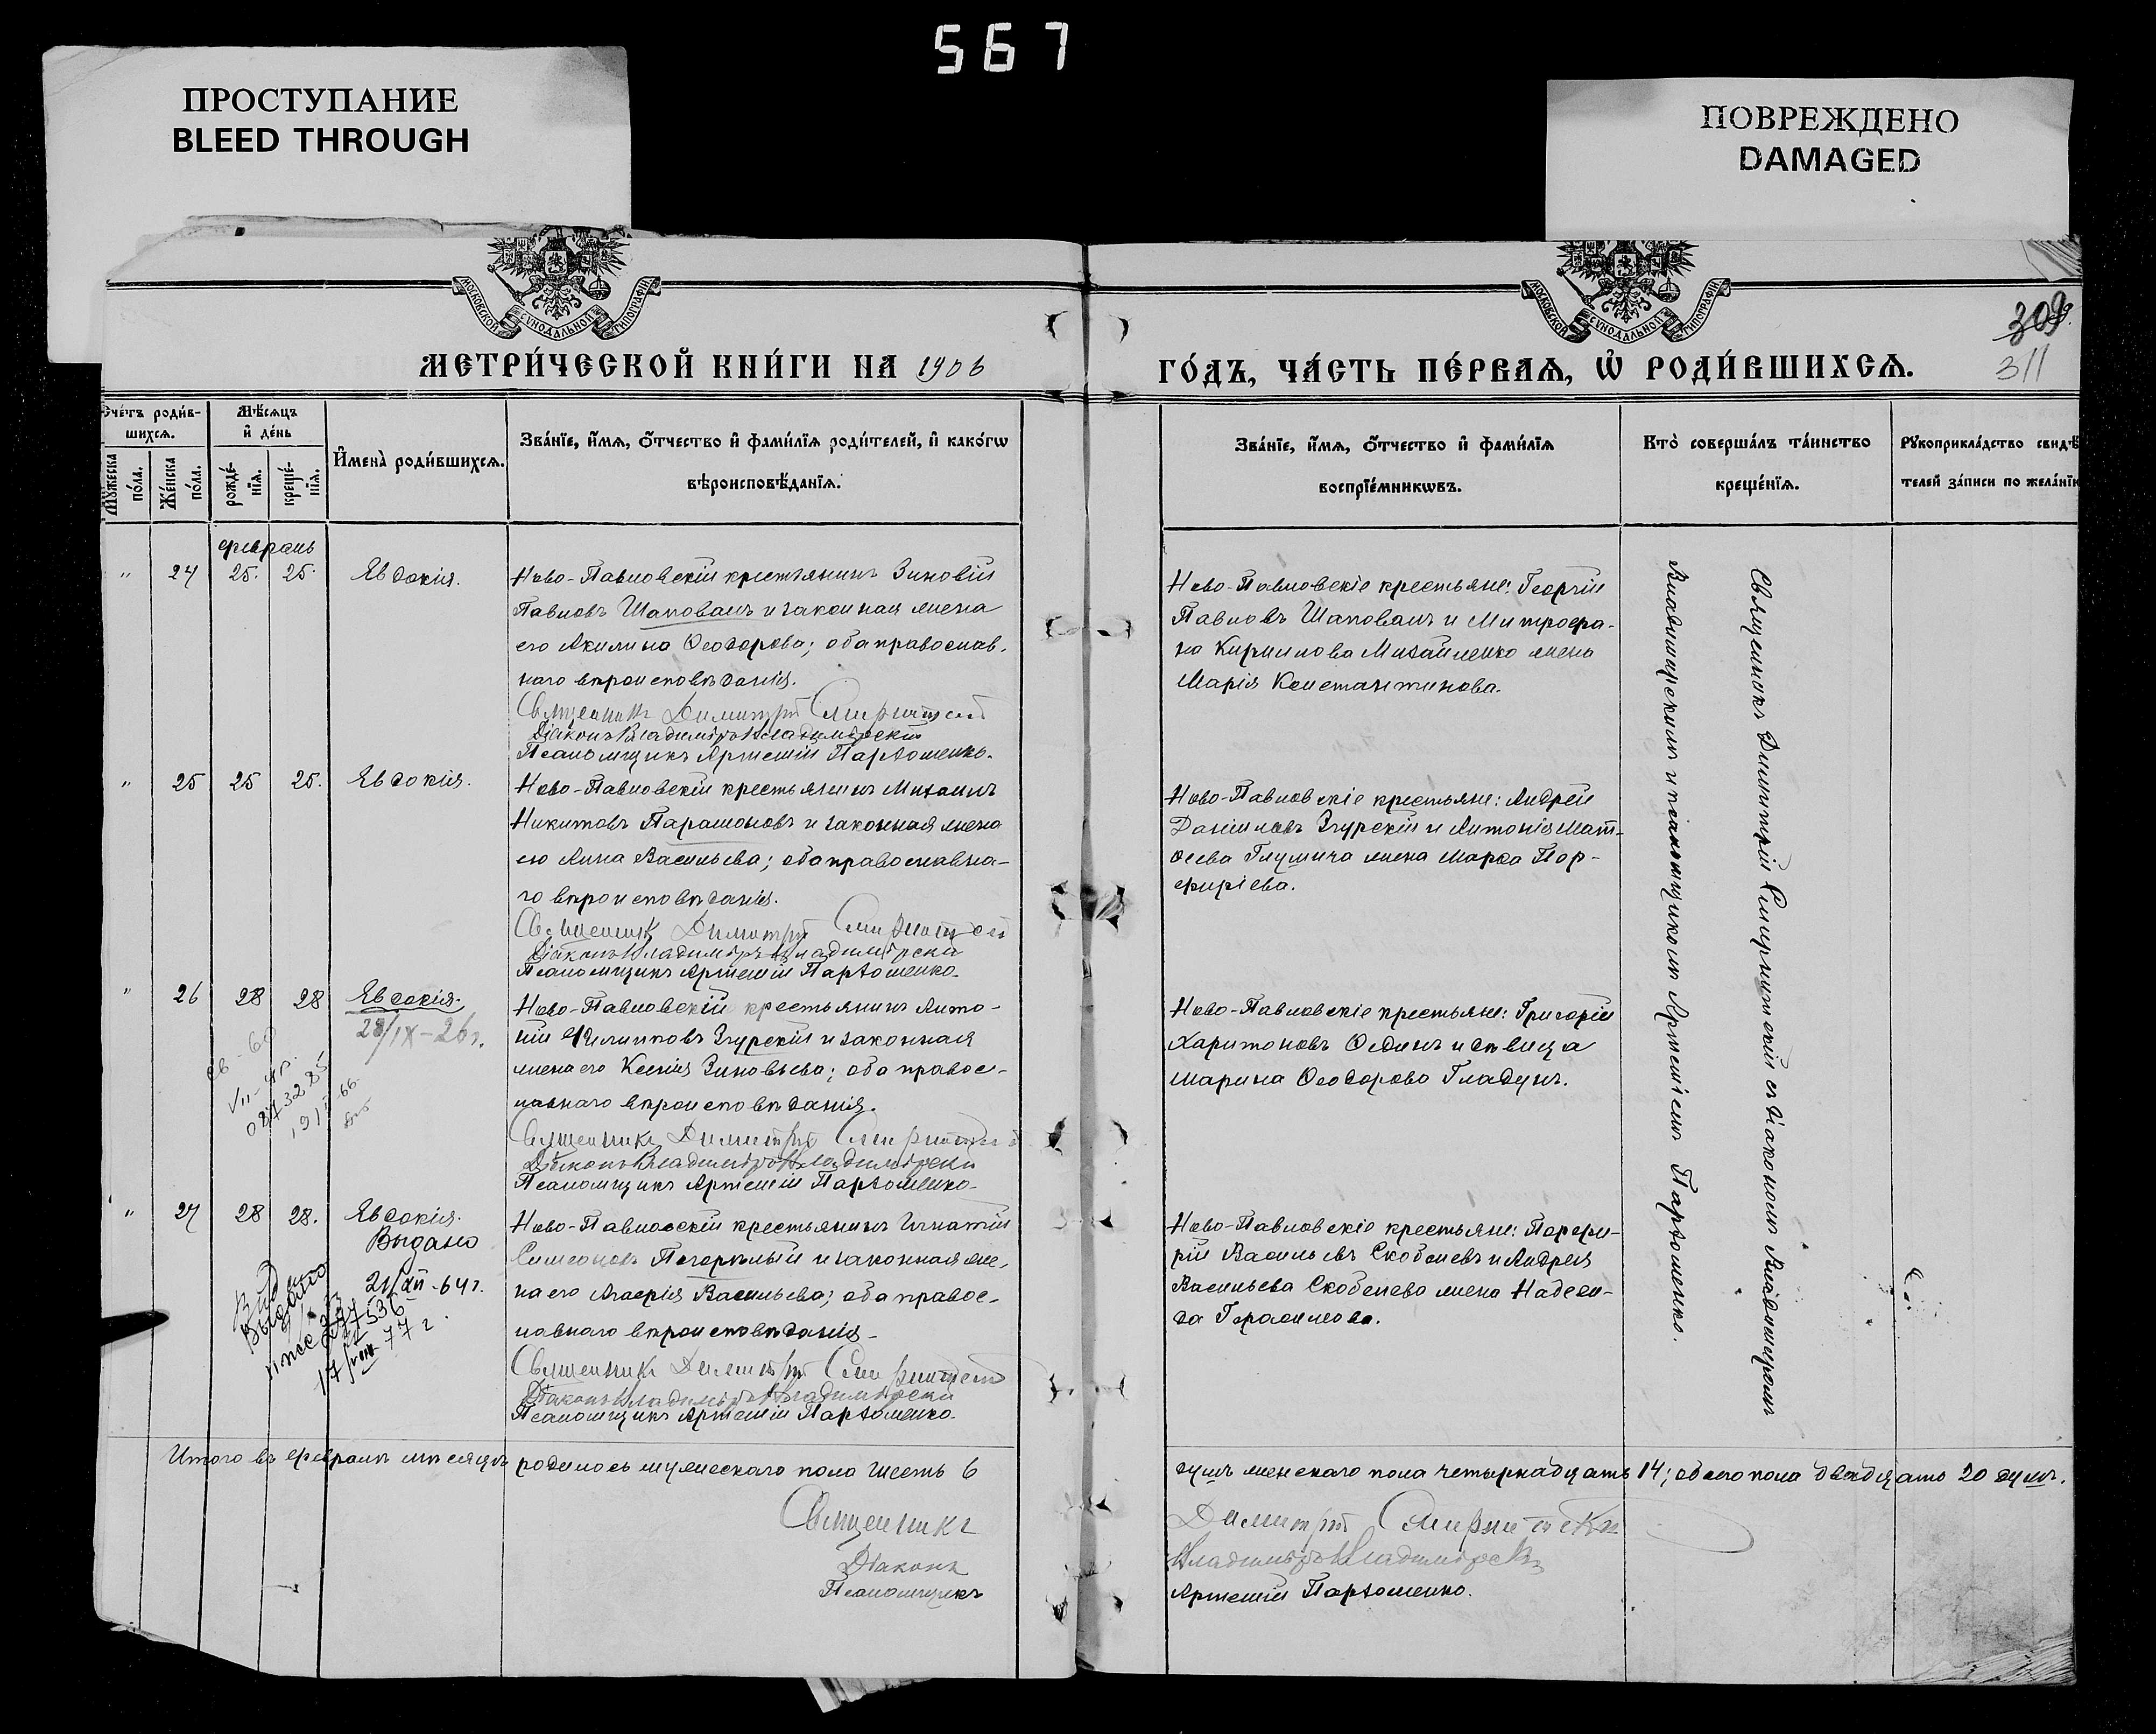 567
ПРОСТУПАНИЕ
BLEED THROUGH
ПОВРЕЖДЕНО
DAMAGED
МОСКОВСКОЙ СѴНОДАЛЬНОЙ ТИПОГРАФІИ
МОСКОВСКОЙ СѴНОДАЛЬНОЙ ТИПОГРАФІИ
309.
311
МЕТРИ́ЧЕСКОЙ КНИ́ГИ НА 1906
ГО́ДЪ, ЧА́СТЬ ПЕ́РВАѦ, Ѡ҆ РОДИ́ВШИХСѦ.
Счéтъ роди́в-
шихсѧ.
Мꙋ́жеска
по́ла.
Же́нска
по́ла.
Мѣ́сѧцъ
и҆ де́нь
рожде́-
нїѧ.
креще́-
нїѧ.
И҆мена̀ роди́вшихсѧ.
Зва́нїе, и҆́мѧ, ѻ҆́тчество и҆ фами́лїѧ роди́телей, и҆ како́гѡ
вѣроисповѣ́данїѧ.
Зва́нїе, и҆́мѧ, ѻ҆́тчество и҆ фами́лїѧ
воспрїе́мникѡвъ.
Кто̀ соверша́лъ та́инство
креще́нїѧ.
Рꙋкоприкла́дство свидѣ́
телей за́писи по жела́нїю
февраль
" 24 25. 25. Евдокія.
Ново-Павловскій крестьянинъ Зиновій
Павловъ Шаповалъ и законная жена
его Акилина Ѳеодорова; оба православ-
наго вѣроисповѣданія.
Священникъ Димитрій Смирнитскій
Діаконъ Владиміръ Владимірскій
Псаломщикъ Артемій Пархоменко.
Ново-Павловскіе крестьяне: Георгій
Павловъ Шаповалъ и Митрофа-
на Кириллова Михайленко жена
Марія Константинова.
" 25 25 25. Евдокія.
Ново-Павловскій крестьянинъ Михаилъ
Никитовъ Парамоновъ и законная жена
его Анна Васильева; оба православна-
го вѣроисповѣданія.
Священникъ Димитрій Смирнитскій
Діаконъ Владиміръ Владимірскій
Псаломщикъ Артемій Пархоменко.
Ново-Павловскіе крестьяне: Андрей
Даніиловъ Згурскій и Антонія Мат-
ѳеева Глушича жена Марѳа Пор-
фиріева.
" 26 28 28 Евдокія.
28/IX-26г.
Ново-Павловскій крестьянинъ Анто-
ній Филипповъ Згурскій и законная
жена его Ксенія Зиновьева; оба правос-
лавнаго вѣроисповѣданія.
Священникъ Димитрій Смирнитскій
Діаконъ Владиміръ Владимірскій
Псаломщикъ Артемій Пархоменко.
Ново-Павловскіе крестьяне: Григорій
Харитоновъ и дѣвица
Марина Ѳеодорова Гладунъ.
" 27 28 28. Евдокія.
Выдано
21/XII-64г.
17/VIII 77г.
Ново-Павловскій крестьянинъ Игнатій
Симеоновъ Погорѣлый и законная же-
на его Агафія Васильева; оба правос-
лавнаго вѣроисповѣданія.
Священникъ Димитрій Смирнитскій
Діаконъ Владиміръ Владимірскій
Псаломщикъ Артемій Пархоменко.
Ново-Павловскіе крестьяне: Порфи-
рій Васильевъ Скобелевъ и Андрея
Васильева Скобелева жена Надеж-
да Герасимова.
Священникъ Димитрій Смирнитскій съ діакономъ Владиміромъ
Владимірскимъ и псаломщикомъ Артеміемъ Пархоменко.
Итого въ февралѣ мѣсяцѣ родилось мужескаго пола шесть 6
душъ женскаго пола четырнадцать 14; обоего пола двадцать 20 душъ.
Священникъ Димитрій Смирнитскій
Діаконъ Владиміръ Владимірскій
Псаломщикъ Артемій Пархоменко.